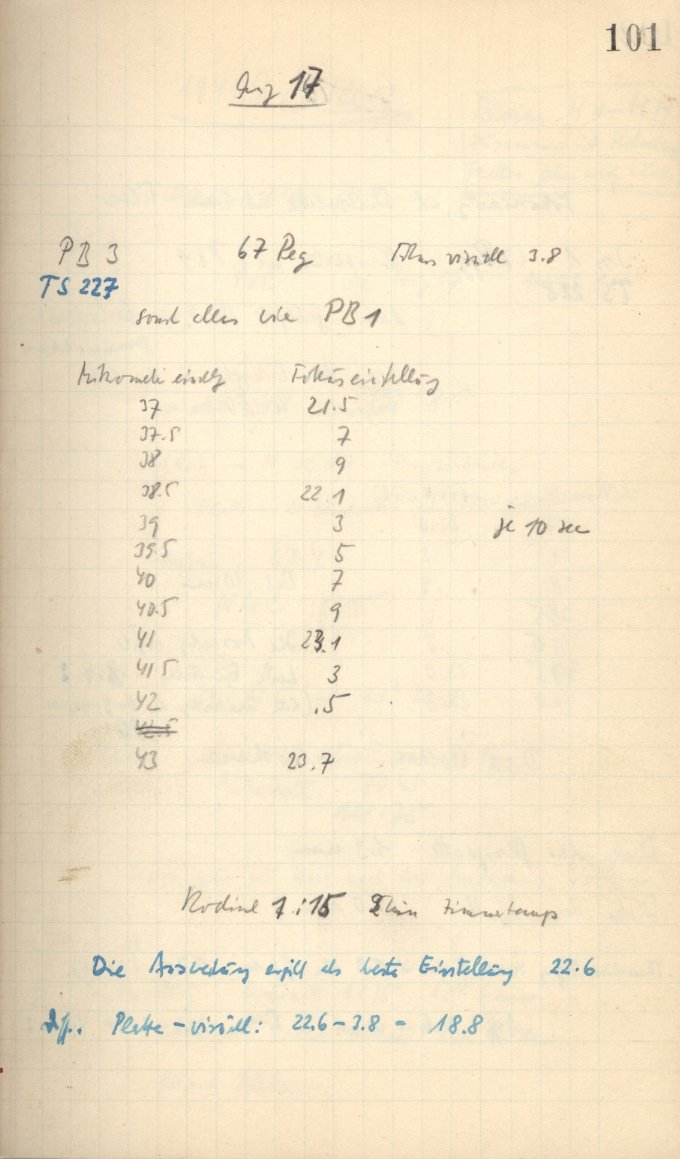 101
Aug 17
PB 3 67 Peg Fokus visuell 3.8
TS 227
sonst alles wie PB 1
Mikrometereinstellg Fokuseinstellung
37 21.5
37.5 7
38 9
38.5 22.1
39 3 je 10 sec
39.5 5
40 7
40.5 9
41 23.1
41.5 3
42 .5
42.5
43 23.7
Rodinal 1:15 Zimmertemp
Die Auswertung ergibt als beste Einstellung 22.6
Diff. Platte – visuell: 22.6 – 3.8 = 18.8